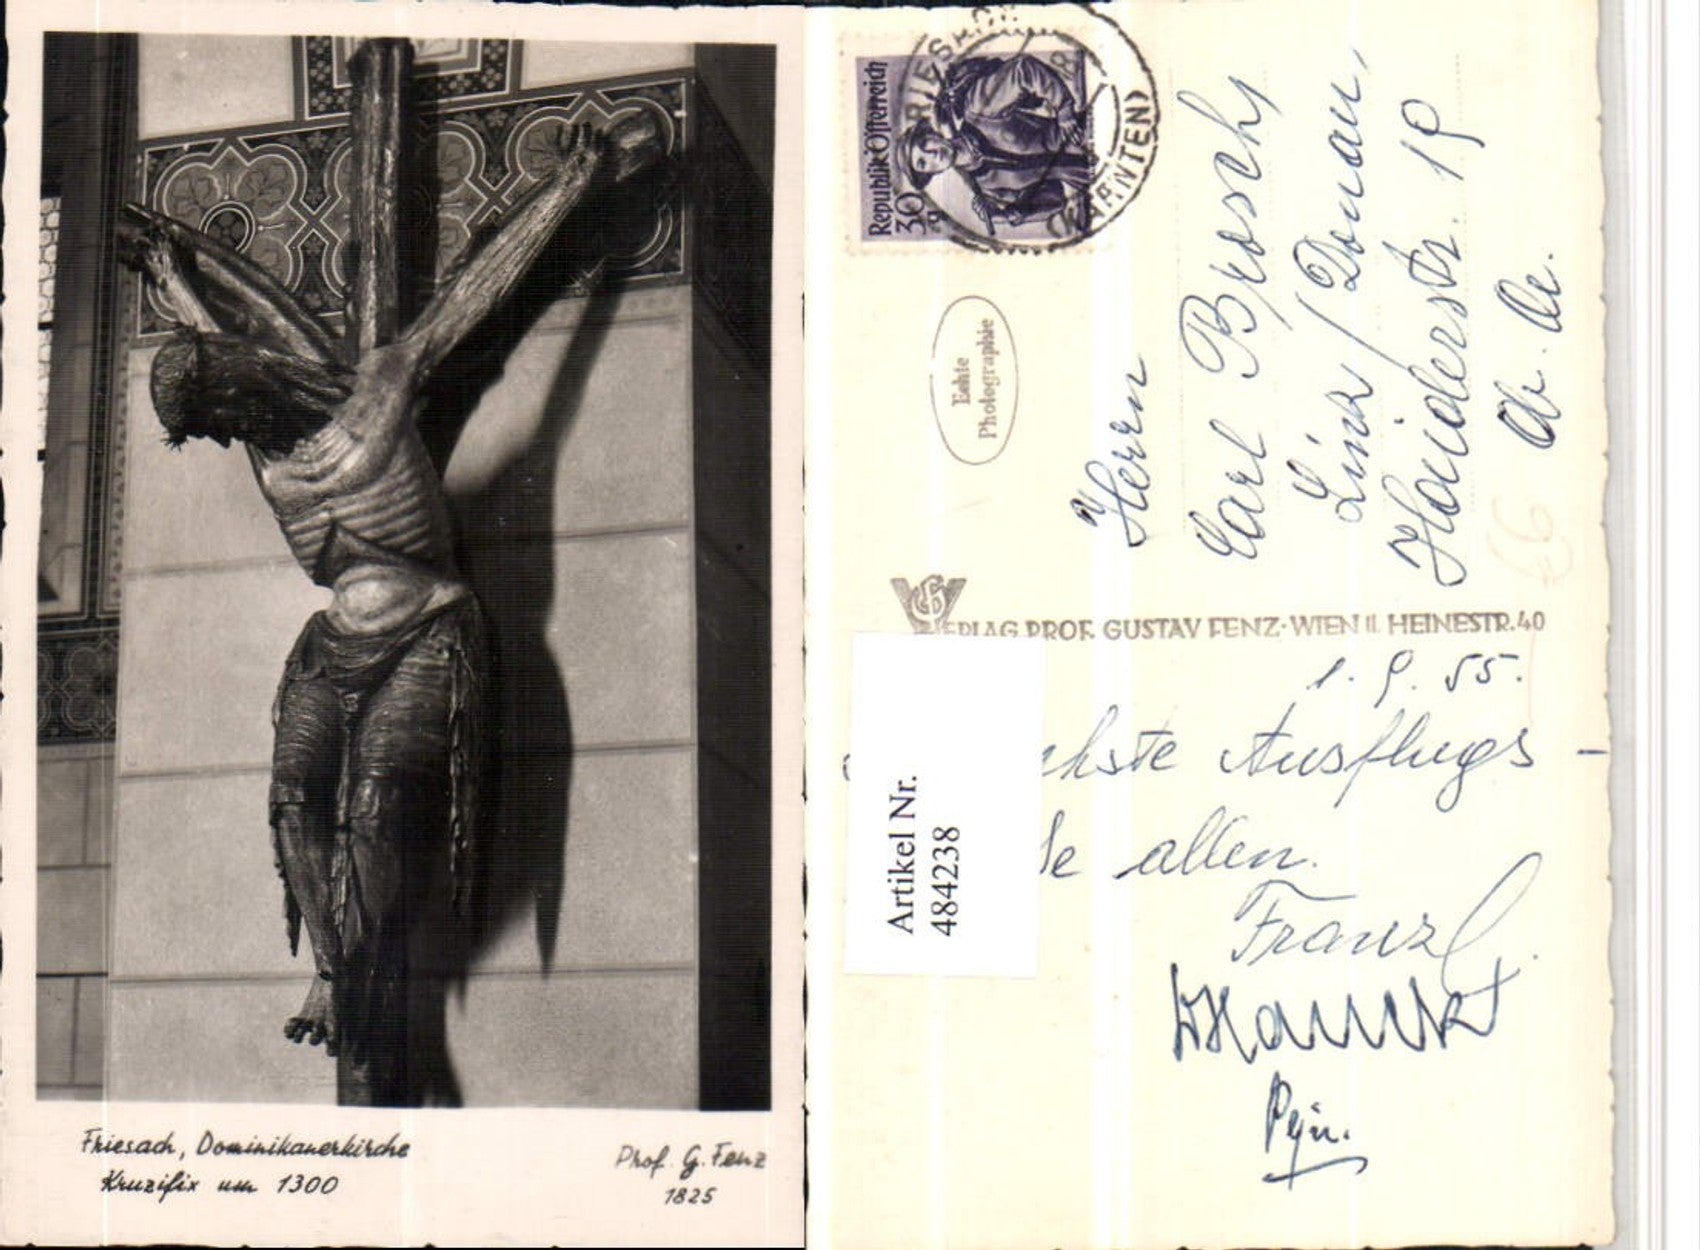 Friesach, Dominikanerkirche
Kruzifix um 1300
Prof. G. Fenz
1825
Republik Österreich
30 g
FRIESACH
(KÄRNTEN)
Echte
Photographie
Herrn
Carl Brosch
Linz / Donau,
Haiderstr. 19
Ob. Oe.
VERLAG PROF. GUSTAV FENZ · WIEN II. HEINESTR. 40
1. 9. 55.
Artikel Nr.
484238
chste Ausflugs-
allen.
Franzl.